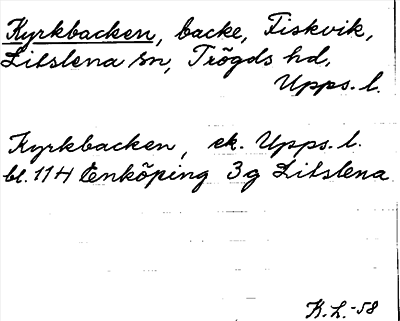 Kyrkbacken, backe, Fiskvik,
Litslena sn, Trögds hd,
Upps. l.
Kyrkbacken, ek. Upps. l.
bl. 114 Enköping 3g Litslena
K.L.-58